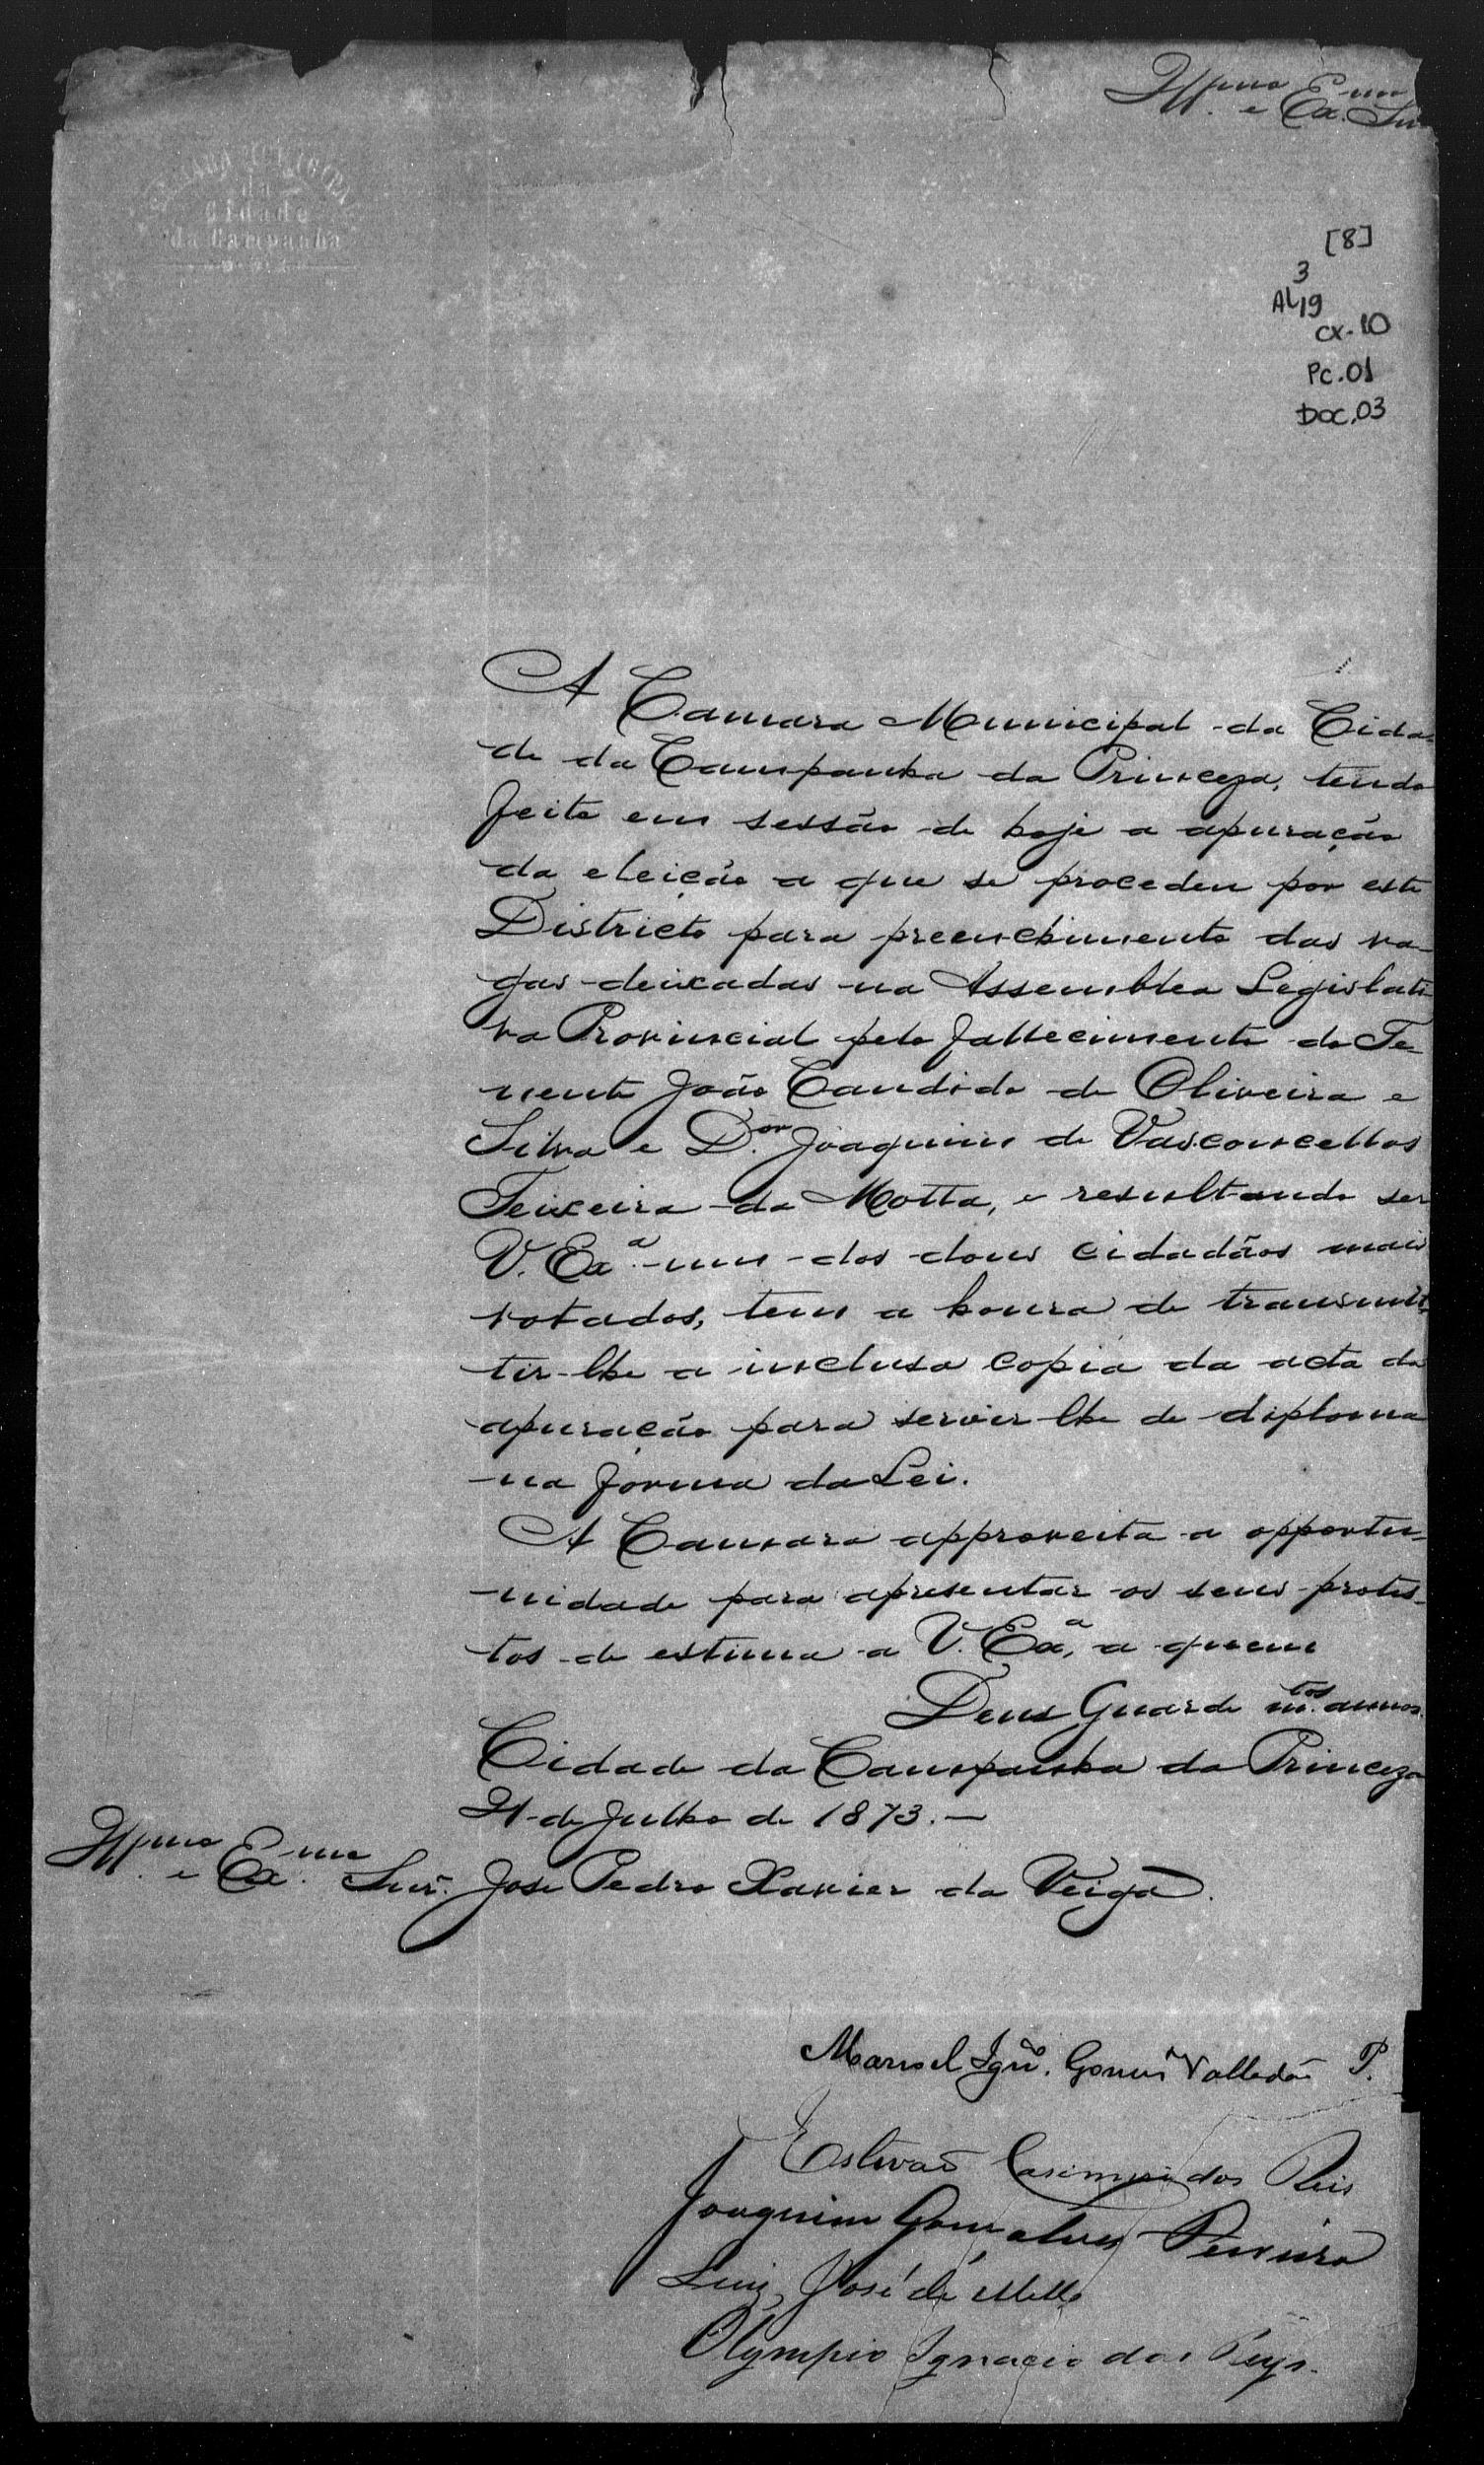 Illmo e Exmo Snr
CAMARA MUNICIPAL
da
Cidade
da Campanha
[8]
3
AL19
CX-10
Pc.01
DOC.03
A Camara Municipal da Cida-
de da Campanha da Princeza, tendo
feito em sessão de hoje a apuração
da eleição a que se procedeu por este
Districto para preenchimento das va-
gas deixadas na Assemblea Legislati-
va Provincial pelo fallecimento do Te-
nente João Candido de Oliveira e
Silva e D.or Joaquim de Vasconcellos
Teixeira da Motta, e resultando ser
V. Exa. um dos dous cidadãos mais
votados, tem a honra de transmit-
tir-lhe a inclusa copia da acta da
apuração para servir-lhe de diploma
na forma da Lei.
A Camara approveita a opportu-
nidade para apresentar os seus protes-
tos de estima a V. Exa, a quem
Deus Guarde m.tos annos.
Cidade da Campanha da Princeza
21 de Julho de 1873.—
Illmo e Exmo Snr. José Pedro Xavier da Veiga.
Manoel Igno. Gomes Valladão P.
Estevão Casimiro dos Reis
Joaquim Gonçalves Ferreira
Luiz José de Mello
Olympio Ignacio dos Reys.